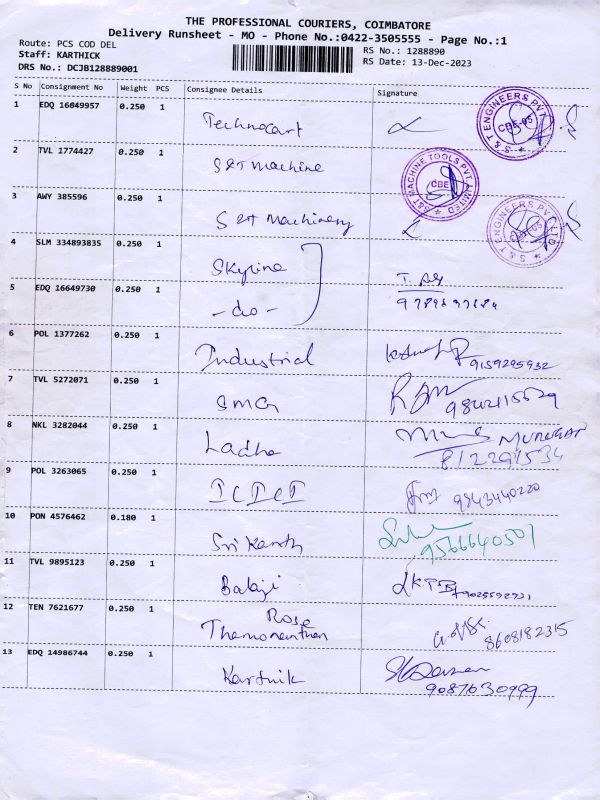 THE PROFESSIONAL COURIERS, COIMBATORE
Delivery Runsheet - MO - Phone No.:0422-3505555 - Page No.:1
Route: PCS COD DEL
RS No.: 1288890
Staff: KARTHICK
RS Date: 13-Dec-2023
DRS No.: DCJB128889001
S No Consignment No Weight PCS Consignee Details Signature
1 EDQ 16649957 0.250 1 Technocart
S & T ENGINEERS PVT. CBE-05
2 TVL 1774427 0.250 1 S&T Machine
S&T MACHINE TOOLS PVT. LIMITED CBE
3 AWY 385596 0.250 1 S&T Machinery
S & T ENGINEERS PVT. LTD.
4 SLM 334893835 0.250 1 Skyline
5 EDQ 16649730 0.250 1 -do-
6 POL 1377262 0.250 1 Industrial 9159295932
7 TVL 5272071 0.250 1 SMG
8 NKL 3282044 0.250 1 Ladha MURUGAN
812291534
9 POL 3263065 0.250 1 ICICI 9943440220
10 PON 4576462 0.180 1 Sri Kanth 9566640507
11 TVL 9895123 0.250 1 Balaji
12 TEN 7621677 0.250 1 Rose 8608182315
13 EDQ 14986744 0.250 1 Karthik
9087630999